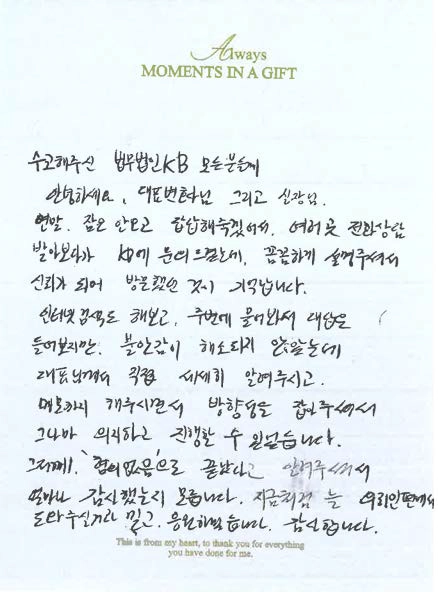 Always
MOMENTS IN A GIFT
수고해주신 법무법인KB 모든분들께
안녕하세요, 대표변호사님 그리고 실장님.
연말. 잠은 안오고 답답해죽겠어서, 여러곳 전화상담
받아보다가 KB에 문의드렸는데, 꼼꼼하게 설명주셔서
신뢰가 되어 방문했던 것이 기억납니다.
인터넷검색도 해보고, 주변에 물어봐서 대답은
들어보지만. 불안감이 해소되지 않았는데
대표님께서 직접 세세히 알려주시고.
메모까지 해주시면서 방향성을 잡아주셔서
그나마 의지하고 진행할 수 있었습니다.
그저께, '혐의없음'으로 끝났다고 알려주셔서
얼마나 감사했는지 모릅니다. 지금처럼 늘 의뢰인편에서
도와주실거라 믿고. 응원하겠습니다. 감사합니다.
This is from my heart, to thank you for everything
you have done for me.